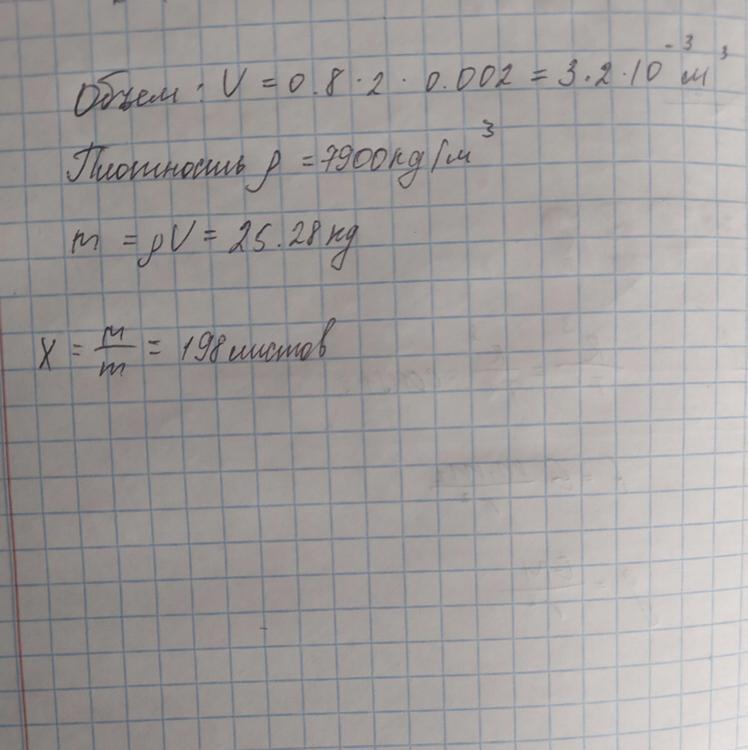 Объем: V = 0.8 · 2 · 0.002 = 3.2 · 10⁻³ м³
Плотность ρ = 7900кg/м³
m = ρV = 25.28кg
X = M/m = 198листов